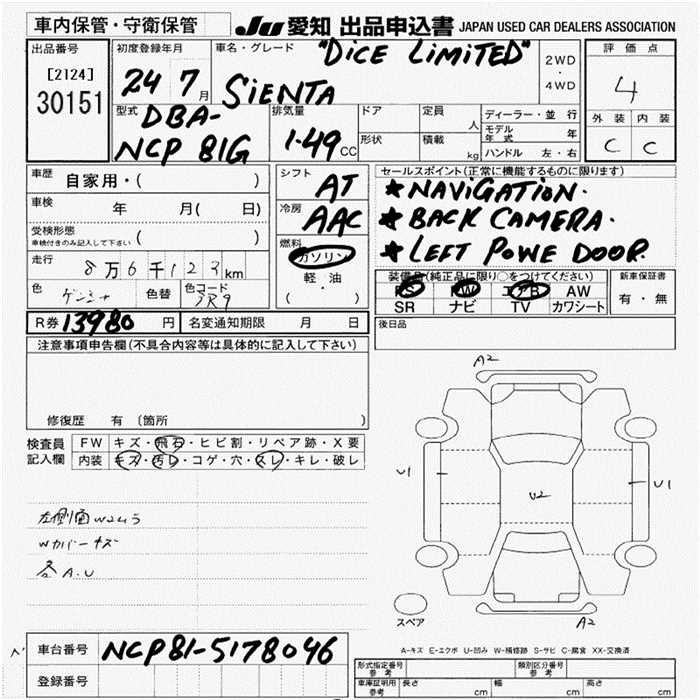 車内保管・守衛保管 JU 愛知 出品申込書 JAPAN USED CAR DEALERS ASSOCIATION
出品番号 初度登録年月 車名・グレード "DICE LIMITED" 2WD・4WD 評価点
[2124] 24 7月 SIENTA 4
30151
型式 DBA- 排気量 ドア 定員 人 ディーラー・並行 外装 内装
NCP 81G 1.49 CC 形状 積載 kg モデル年式 年 C C
ハンドル 左・右
車歴 自家用・( ) シフト AT セールスポイント(正常に機能するものに限ります)
車検 年 月( 日) 冷房 AAC ★NAVIGATION.
受検形態 ( ) ★BACK CAMERA.
車検付きのみ記入して下さい 燃料 ガソリン ★LEFT POWE DOOR.
走行 8万6千123km 軽・油 装備品(純正品に限り○をつけてください) 新車保証書
色 色替 色コード ・( ) PS PW エアB AW 有・無
SR ナビ TV カワシート
R券 13980 円 名変通知期限 月 日 後日品
注意事項申告欄(不具合内容等は具体的に記入して下さい)
修復歴 有 〔箇所 〕
検査員 FW キズ・飛石・ヒビ割・リペア跡・X要
記入欄 内装 キズ・汚レ・コゲ・穴・スレ・キレ・破レ
A2
U1 U2 U1
左側面W2ムラ
Wカバーキズ
各A.U
スペア A2
A-キズ E-エクボ U-凹み W-補修跡 S-サビ C-腐食 XX-交換済
車台番号 NCP81-5178046
登録番号
形式指定番号 参考 類別区分番号 参考
車庫証明用 参考 長さ cm 幅 cm 高さ cm